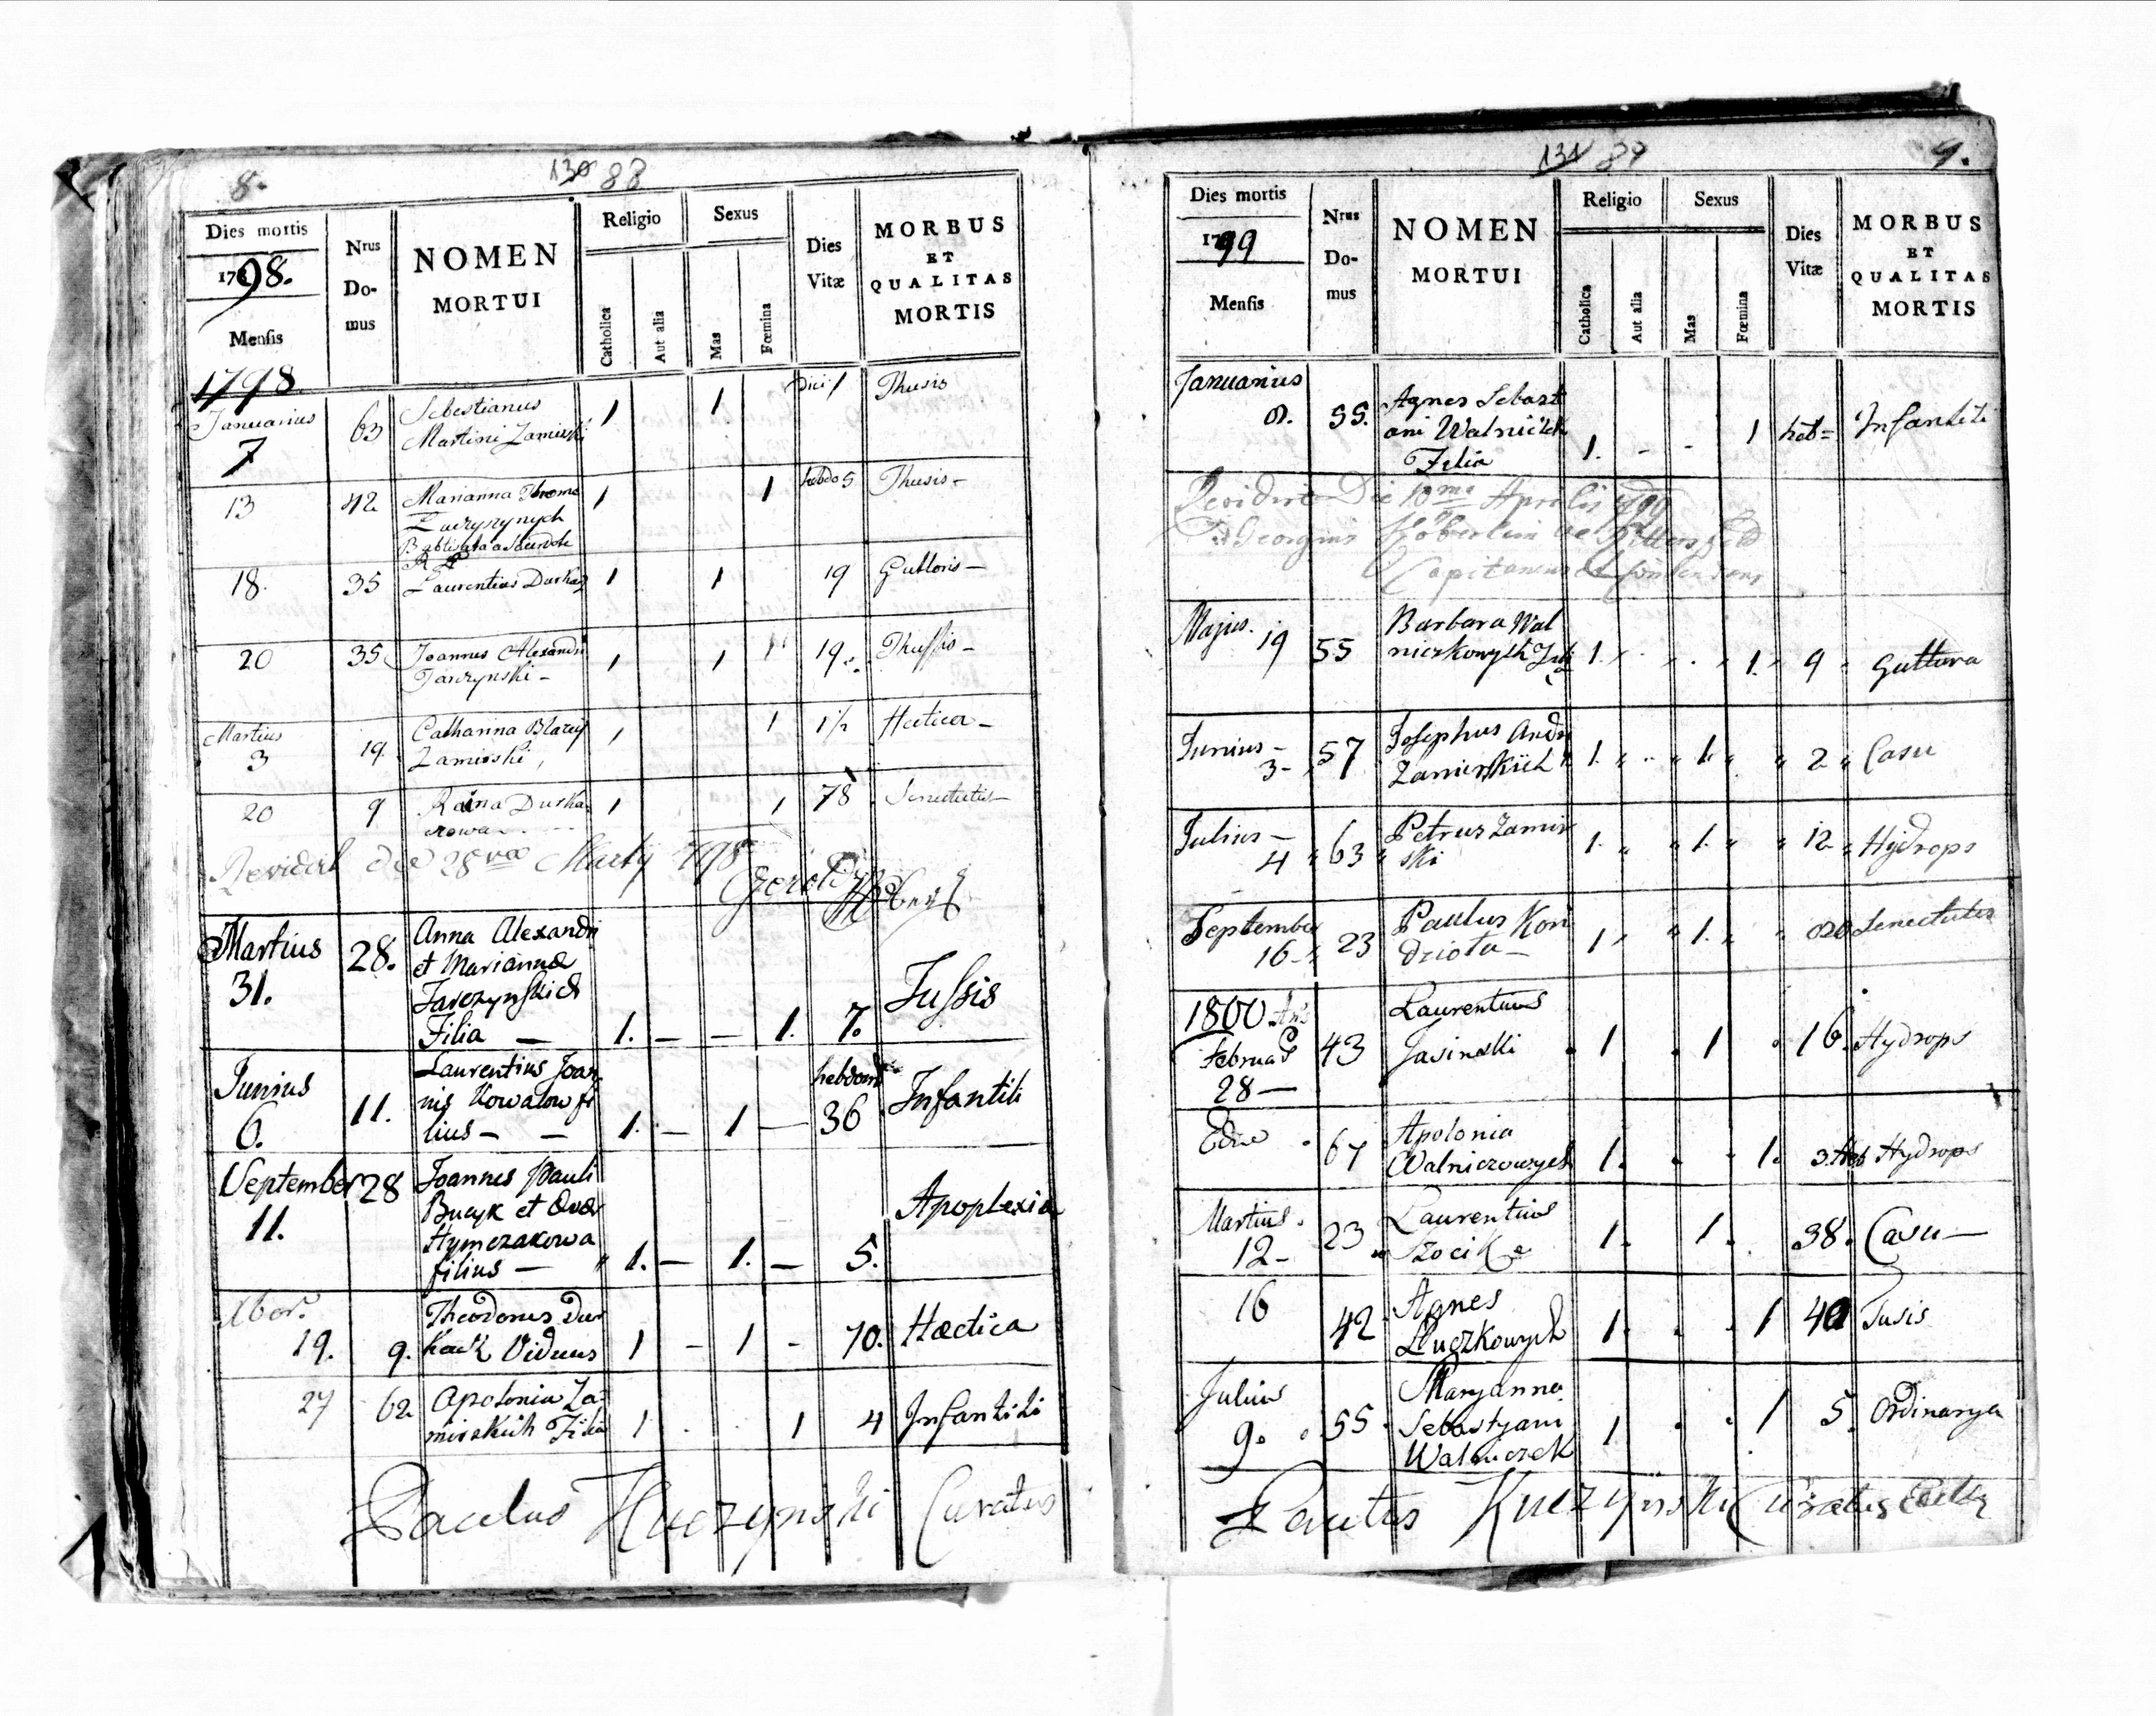 8. 130 88
Dies mortis
1798.
Mensis
Nrus
Do-
mus
NOMEN
MORTUI
Religio
Catholica
Aut alia
Sexus
Mas
Fœmina
Dies
Vitæ
MORBUS
ET
QUALITAS
MORTIS
1798
Januarius
7 63 Sebestianus 1 1 Dici 1 Thusis
Martini Zamirski
13 42 Marianna Thoma 1 1 hebdo 5 Thusis -
18. 35 Laurentius 1 1 19 Guttoris -
20 35 Joannes Alexandri 1 1 19 Thussis -
Jarzynski -
Martius
3 19 Catharina Blazej 1 1 1½ Hectica -
Zamirski
20 9 Raina Durka 1 1 78 Senectutis -
czowa
Revidit die 28va Martij 798
Martius
31. 28. Anna Alexandri
et Marianna
Jarczynskich
Filia — 1. — — 1. 7. Tussis
Junius
6. 11. Laurentius Joan
nis Kowalow fi
lius — — 1. — 1 — hebdom 36 Infantili
September 28 Joannes Pauli
11. Bucyk et Evæ
Hymczakowa
filius — 1. — 1. — 5. Apoplexia
Xbor.
19. 9. Theodorus Dur
kacz Viduus 1 - 1 - 70. Hæctica
27 62 Apolonia Za=
mirskich Filia 1 1 4 Infantili
Paulus Kuczynski Curatus
131 89 9.
Dies mortis
1799
Mensis
Nrus
Do-
mus
NOMEN
MORTUI
Religio
Catholica
Aut alia
Sexus
Mas
Fœmina
Dies
Vitæ
MORBUS
ET
QUALITAS
MORTIS
Januarius
55. Agnes Sebast
ani Walniczek
Filia 1. - - 1 heb= Infantili
Die 10ma Aprilis 799
Georgius
Majus. 19 55 Barbara Wal
niczkowych 1. 1. 9 Guttura
Junius -
3- 57 Josephus Andr
Zamirskich 1. 1. 2 Casu
Julius -
4 63 Petrus Zamir
ski 1. 1. 12 Hydrops
September
16 23 Paulus Kon
dziola - 1 1. Senectutis
1800
Februa
28 — 43 Laurentius
Jasinski 1 1 16. Hydrops
67 Apolonia
Walniczowych 1. 1. 3 Heb Hydrops
Martius.
12- 23 Laurentius
1. 1. 38. Casu —
16 42 Agnes
Łuczkowych 1. 1 40 Tusis
Julius
9. 55 Maryanna
Sebastyani
Walniczek 1 1 5. Ordinarya
Paulus Kuczynski Curatus